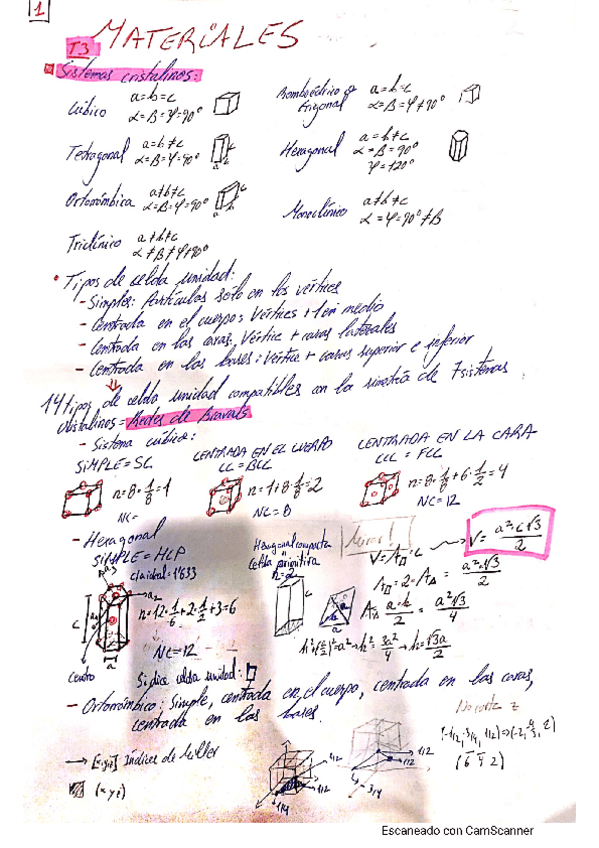 1
T3 MATERIALES
Sistemas cristalinos:
Cúbico a=b=c
α=β=φ=90º
Romboédrico o Trigonal a=b=c
α=β=φ≠90º
Tetragonal a=b≠c
α=β=φ=90º
Hexagonal a=b≠c
α=β=90º
φ=120º
Ortorrómbica a≠b≠c
α=β=φ=90º
Monoclínico a≠b≠c
α=φ=90º≠β
Triclínico a≠b≠c
α≠β≠φ≠90º
• Tipos de celda unidad:
- Simples: Partículas sólo en los vértices
- Centrada en el cuerpo: Vértices + 1 en medio
- Centrada en las caras. Vértice + caras laterales
- Centrada en las bases: Vértice + caras superior e inferior
14 tipos de celda unidad compatibles con la simetría de 7 sistemas
cristalinos = Redes de Bravais
- Sistema cúbico:
SIMPLE = SC
n=8·1/8=1
NC=
CENTRADA EN EL CUERPO
CC = BCC
n=1+8·1/8=2
NC=8
CENTRADA EN LA CARA
CCC = FCC
n=8·1/8+6·1/2=4
NC=12
- Hexagonal
SIMPLE = HCP
c/a ideal=1'633
n=12·1/6+2·1/2+3=6
NC=12
Centro
Hexagonal compacta
Celda primitiva
n=2
Mirar!
V=A·c
V= a²·c√3/2
A=2·A= a²·√3/2
A= a·h/2 = a²√3/4
h²+(a/2)²=a²→h²=3a²/4→h=√3a/2
Si dice celda unidad:
- Ortorrómbico: Simple, centrada en el cuerpo, centrada en las caras,
centrada en las bases.
No corta z
→ [x,y,z] Índices de Miller
(x y z)
1/2
1/2
1/4
1/2
1/2
-3/4
(6 4 2)
Escaneado con CamScanner